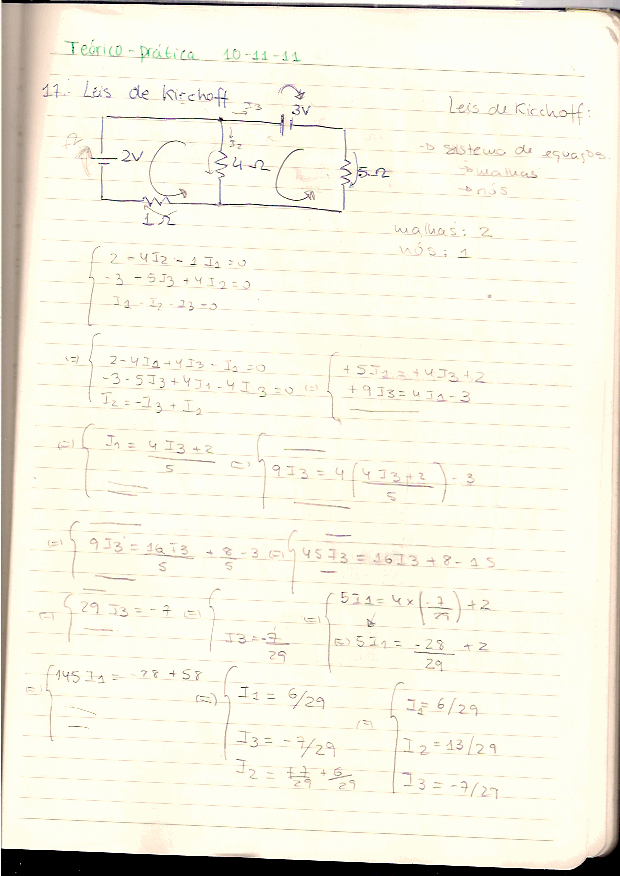 Teórico-prática 10-11-11
17. Leis de Kirchoff
I3
3V
2V
I2
4Ω
5Ω
1Ω
Leis de Kirchoff:
→ sistema de equações
→ malhas
→ nós
malhas: 2
nós: 1
2 - 4I2 - 1I1 = 0
-3 - 5I3 + 4I2 = 0
I1 - I2 - I3 = 0
(=) 2 - 4I1 + 4I3 - I1 = 0
-3 - 5I3 + 4I1 - 4I3 = 0
I2 = -I3 + I1
(=) +5I1 = +4I3 + 2
+9I3 = 4I1 - 3
(=) I1 = 4I3 + 2 / 5
(=) 9I3 = 4 (4I3 + 2 / 5) - 3
(=) 9I3 = 16I3 / 5 + 8/5 - 3
(=) 45I3 = 16I3 + 8 - 15
(=) 29I3 = -7
(=) I3 = -7/29
(=) 5I1 = 4 × (-7/29) + 2
(=) 5I1 = -28/29 + 2
(=) 145I1 = -28 + 58
(=) I1 = 6/29
I3 = -7/29
I2 = +7/29 + 6/29
(=) I1 = 6/29
I2 = 13/29
I3 = -7/29